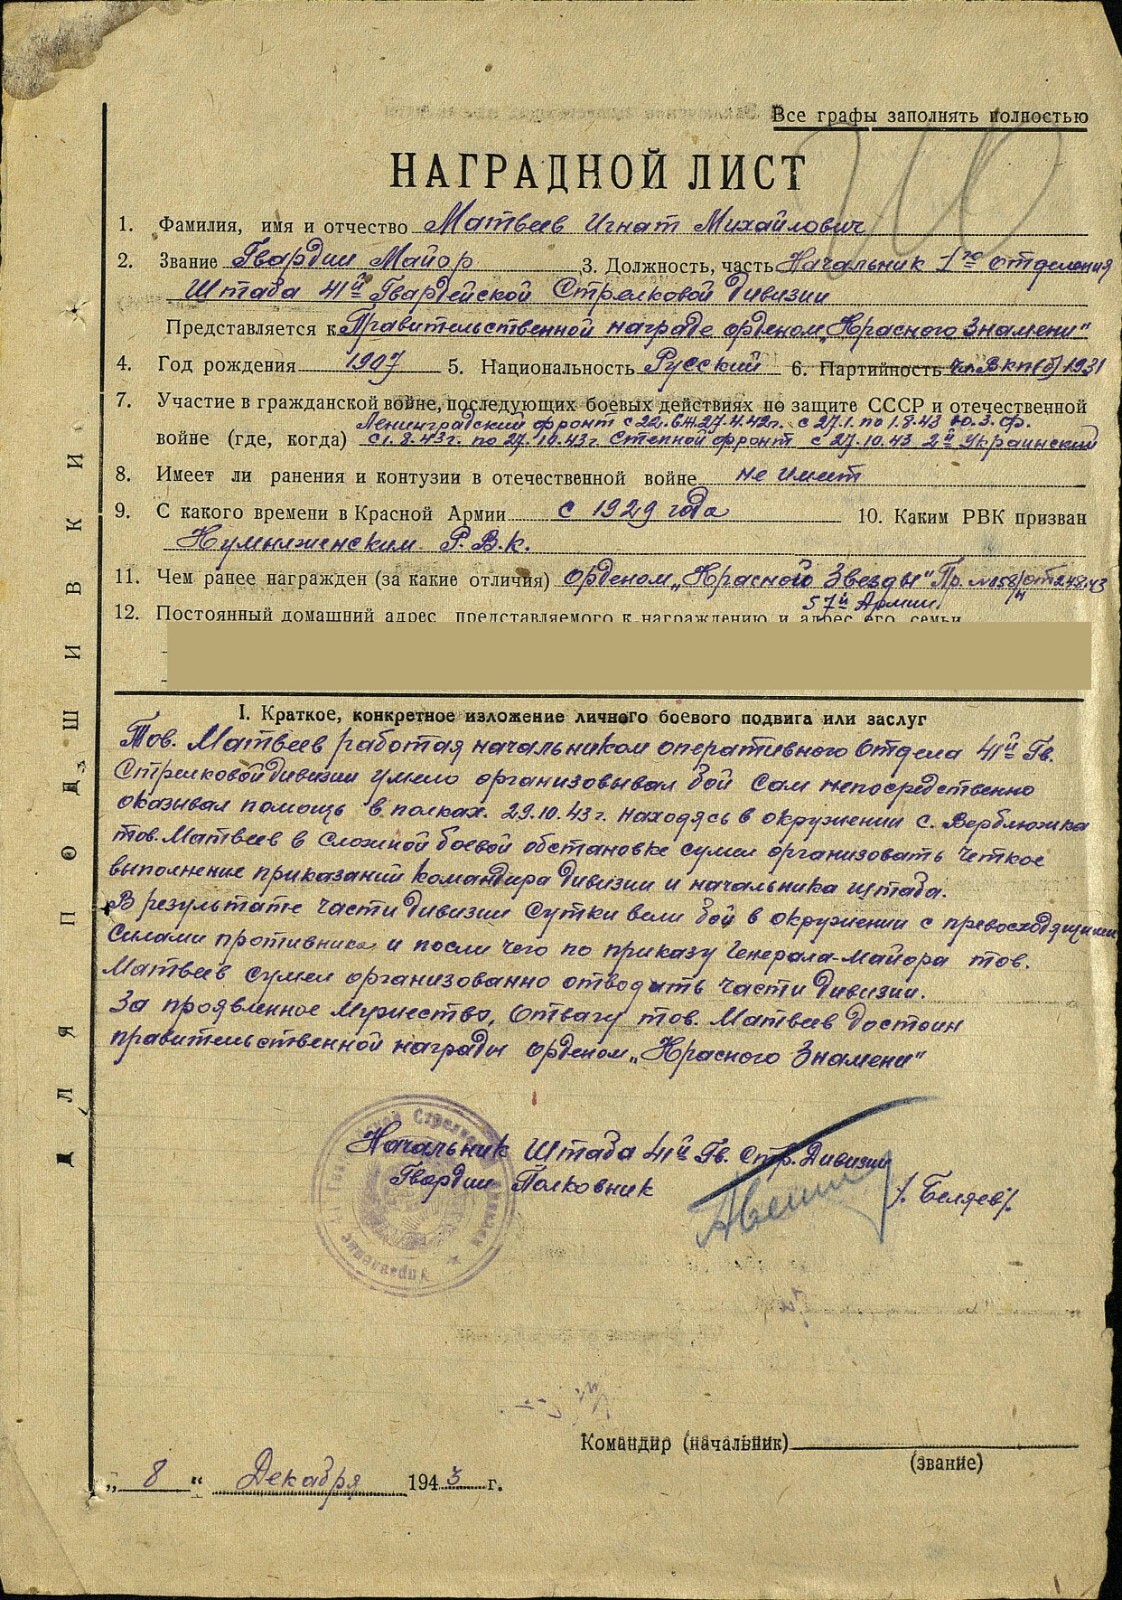 Все графы заполнять полностью
НАГРАДНОЙ ЛИСТ
1. Фамилия, имя и отчество Матвеев Игнат Михайлович
2. Звание Гвардии Майор 3. Должность, часть Начальник 1го отделения
Штаба 41й Гвардейской Стрелковой Дивизии
Представляется к Правительственной награде орденом „Красного Знамени"
4. Год рождения 1907 5. Национальность Русский 6. Партийность чл. ВКП(б) 1931
7. Участие в гражданской войне, последующих боевых действиях по защите СССР и отечественной
Ленинградский фронт с 22.6.41. 27.4.42г. с 27.1. по 1.8.43 Ю.З.ф.
войне (где, когда) с 1.8.43г. по 27.10.43г Степной фронт с 27.10.43 2й Украинский
8. Имеет ли ранения и контузии в отечественной войне не имеет
9. С какого времени в Красной Армии с 1929 года 10. Каким РВК призван
Р.В.К.
11. Чем ранее награжден (за какие отличия) орденом „Красного Звезды" Пр. №158/н от 24.8.43
57й Армии
12. Постоянный домашний адрес представляемого к награждению и адрес его семьи
I. Краткое, конкретное изложение личного боевого подвига или заслуг
Тов. Матвеев работая начальником оперативного отдела 41й Гв.
Стрелковой дивизии умело организовывал бой Сам непосредственно
оказывал помощь в полках. 29.10.43г. находясь в окружении с. Верблюжка
тов. Матвеев в сложной боевой обстановке сумел организовать четкое
выполнение приказаний командира дивизии и начальника штаба.
В результате части дивизии сутки вели бой в окружении с превосходящими
силами противника и после чего по приказу Генерала-Майора тов.
Матвеев сумел организованно отводить части дивизии.
За проявленное мужество, отвагу тов. Матвеев достоин
правительственной награды орденом „Красного Знамени"
Начальник Штаба 41й Гв. Стр. Дивизии
Гвардии Полковник /. Беляев/.
Командир (начальник)
(звание)
„ 8 " Декабря 1943 г.
ДЛЯ ПОДШИВКИ